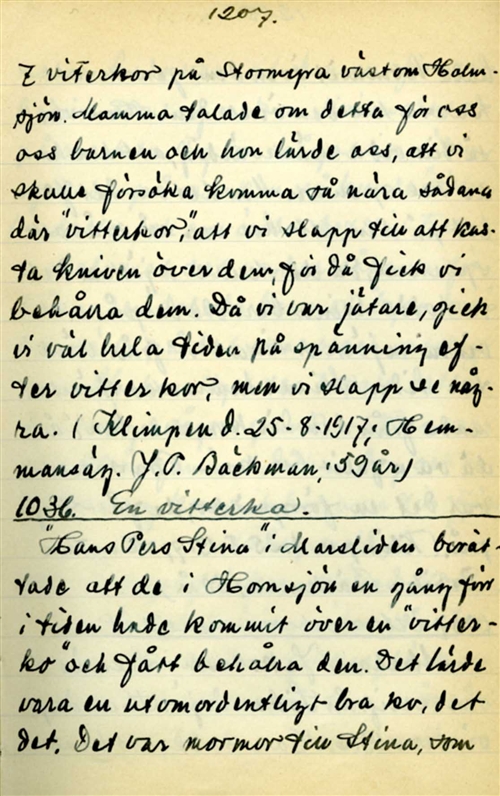 1207.
7 vitterkor på Stormyra väst om Holm-
sjön. Mamma talade om detta för oss
oss barnen och hon lärde oss, att vi
skulle försöka komma så nära sådana
där "vitterkor", att vi slapp till att kas-
ta kniven över dem, för då fick vi
behålla dem. Då vi var jätare, gick
vi väl hela tiden på spänning ef-
ter vitterkor, men vi slapp se någ-
ra. (Klimpen d. 25-8-1917; Hem-
mansäg. J. P. Bäckman, 59 år)
1036. En vitterko.
"Hans Pers Stina" i Marsliden berät-
tade att de i Hornsjön en gång förr
i tiden hade kommit över en "vitter-
ko" och fått behålla den. Det lärde
vara en utomordentligt bra ko, det
det. Det var mormor till Stina, som